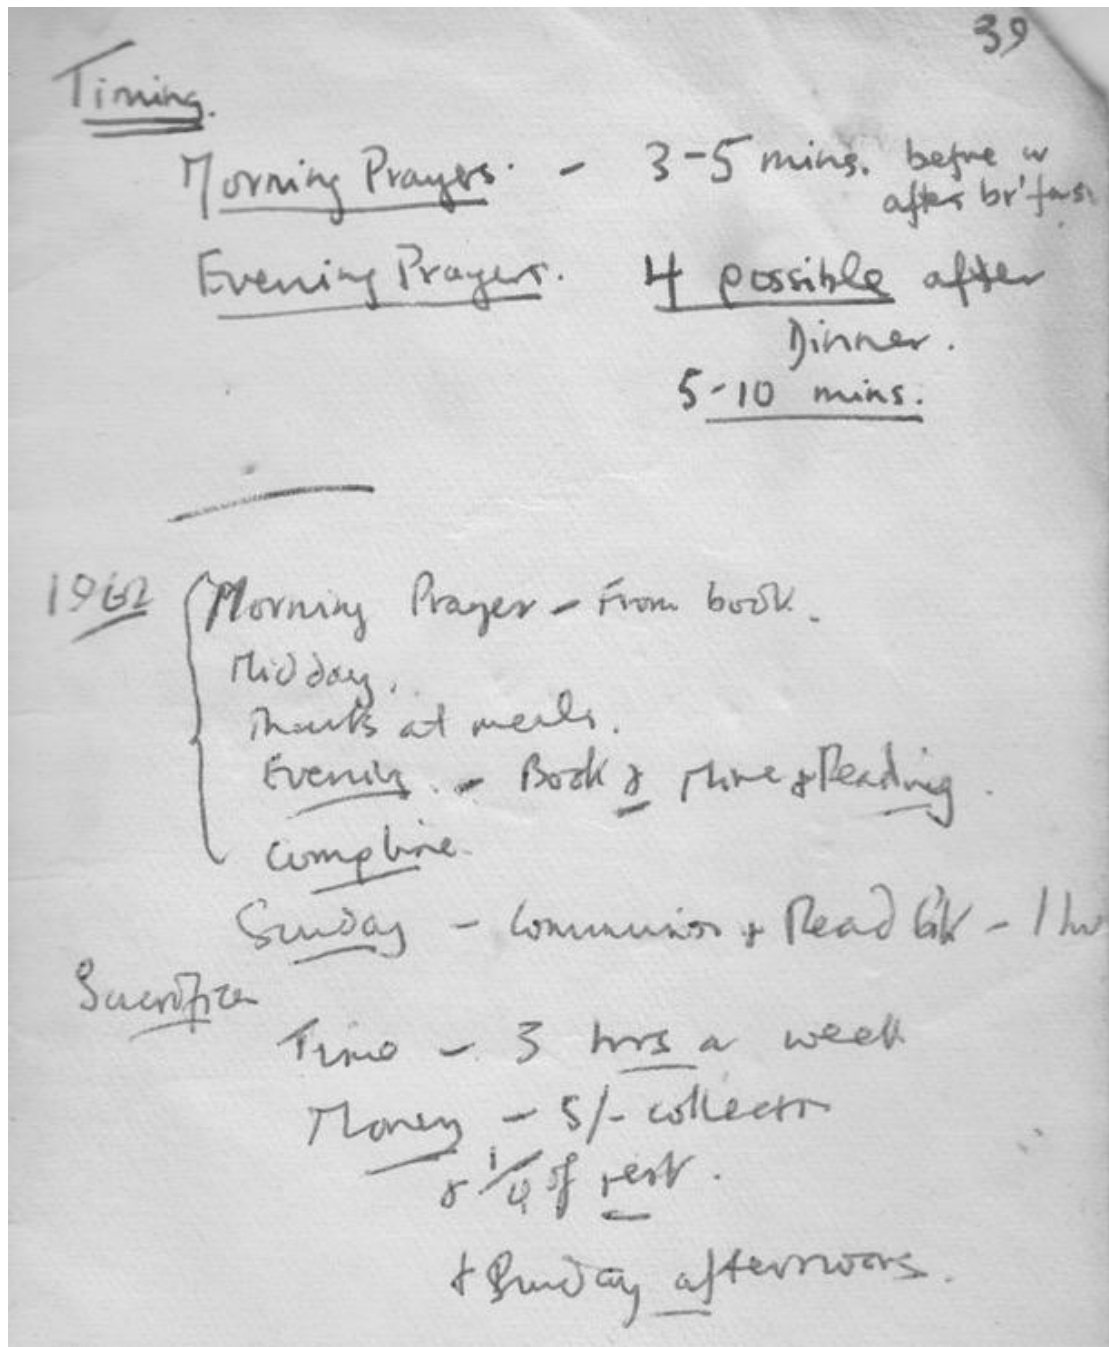 39
Timing.
Morning Prayers. - 3-5 mins. before or
after br'fast
Evening Prayers. 4 possible after
Dinner.
5-10 mins.
1962 Morning Prayer - From book.
Midday.
Thanks at meals.
Evening. - Book & Mine & Reading.
Compline.
Sunday - Communion & Read bk - 1 hr
Sacrifice
Time - 3 hrs a week
Money - 5/- collection
& 1/4 of rest.
& Sunday afternoons.